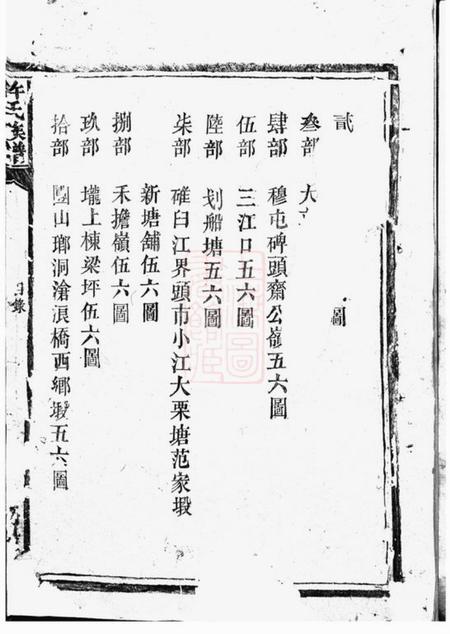 貳
圖
叁部 大
肆部 穆屯碑頭齋公嶺五六圖
伍部 三江口五六圖
陸部 划船塘五六圖
柒部 碓臼江界頭市小江大栗塘范家塅
新塘舖伍六圖
捌部 禾擔嶺伍六圖
玖部 壠上棟梁坪伍六圖
拾部 山瑯洞滄浪橋西鄉塅五六圖
許氏族譜
目錄